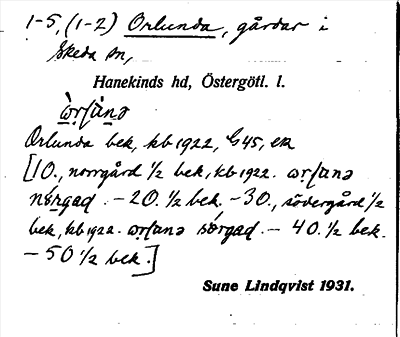 1-5, (1-2) Orlunda, gårdar i
Skeda sn,
Hanekinds hd, Östergötl. l.
Orlunda bek, kb 1922, G45, ek
[10., norrgård 1/2 bek, kb 1922.
- 20. 1/2 bek. - 30., södergård 1/2
bek, kb 1922. - 40. 1/2 bek.
- 50 1/2 bek.]
Sune Lindqvist 1931.